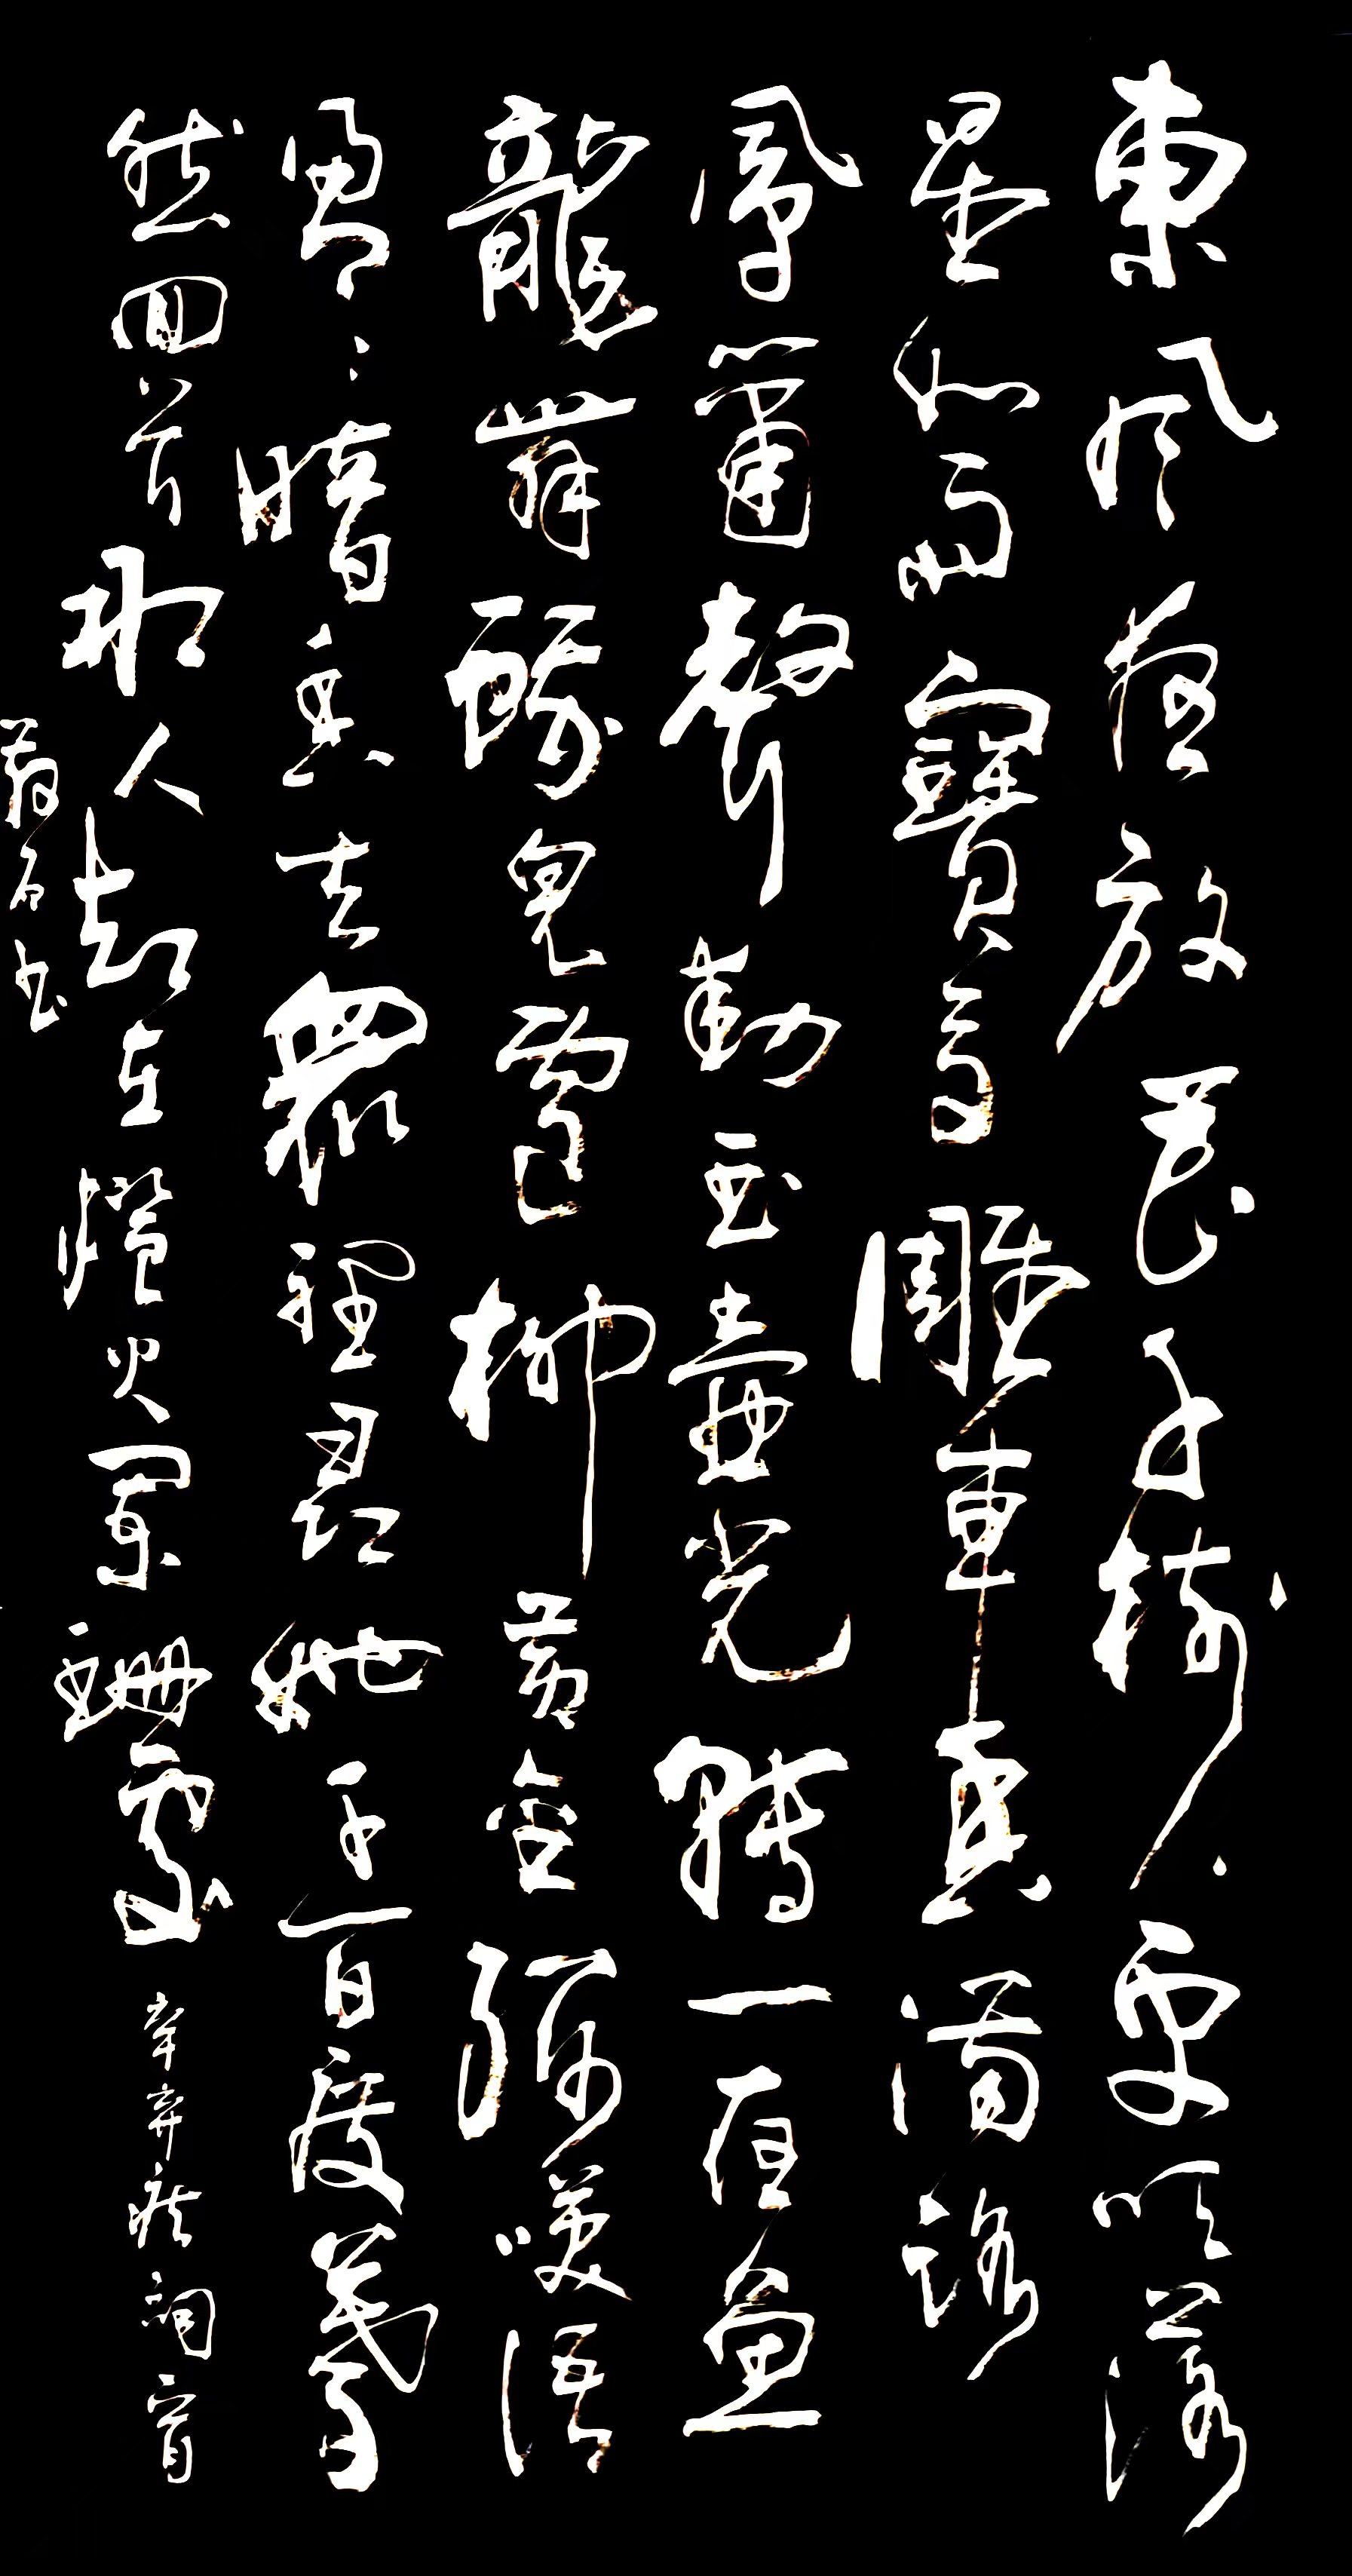 東風夜放花千樹更吹落
星如雨寶馬雕車香滿路
鳳簫聲動玉壺光轉一夜魚
龍舞蛾兒雪柳黃金縷笑語
盈〻暗香去衆裡尋她千百度驀
然回首那人却在燈火闌珊處 辛弃疾詞
书